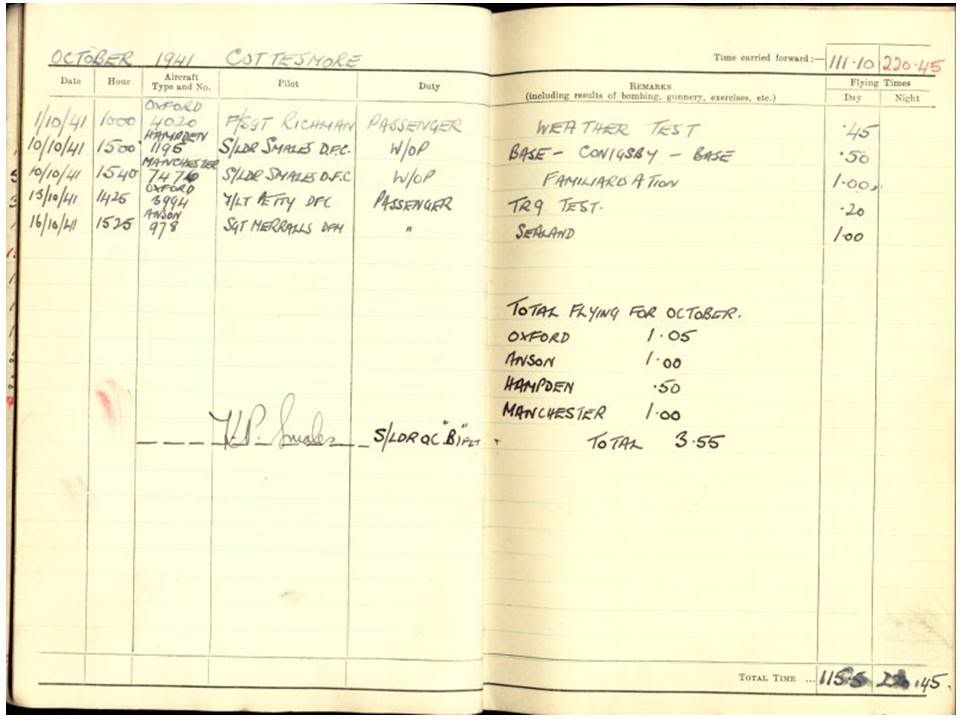 OCTOBER 1941 COTTESMORE
Time carried forward:— 111.10 220.45
Date Hour Aircraft Type and No. Pilot Duty REMARKS (including results of bombing, gunnery, exercises, etc.) Flying Times Day Night
1/10/41 1000 OXFORD 4020 F/SGT RICHMAN PASSENGER WEATHER TEST .45
10/10/41 1500 HAMPDEN 1195 S/LDR SMALES D.F.C. W/OP BASE – CONIGSBY – BASE .50
10/10/41 1540 MANCHESTER 7476 S/LDR SMALES D.F.C W/OP FAMILIARISATION 1.00
13/10/41 1425 OXFORD 3994 F/LT PETTY DFC PASSENGER TRG TEST. .20
16/10/41 1525 ANSON 978 SGT MERRALLS DFM " SEALAND 1.00
TOTAL FLYING FOR OCTOBER.
OXFORD 1.05
ANSON 1.00
HAMPDEN .50
MANCHESTER 1.00
K.P. Smales S/LDR OC "B" FLT
TOTAL 3.55
TOTAL TIME ... 115.5 220.45.